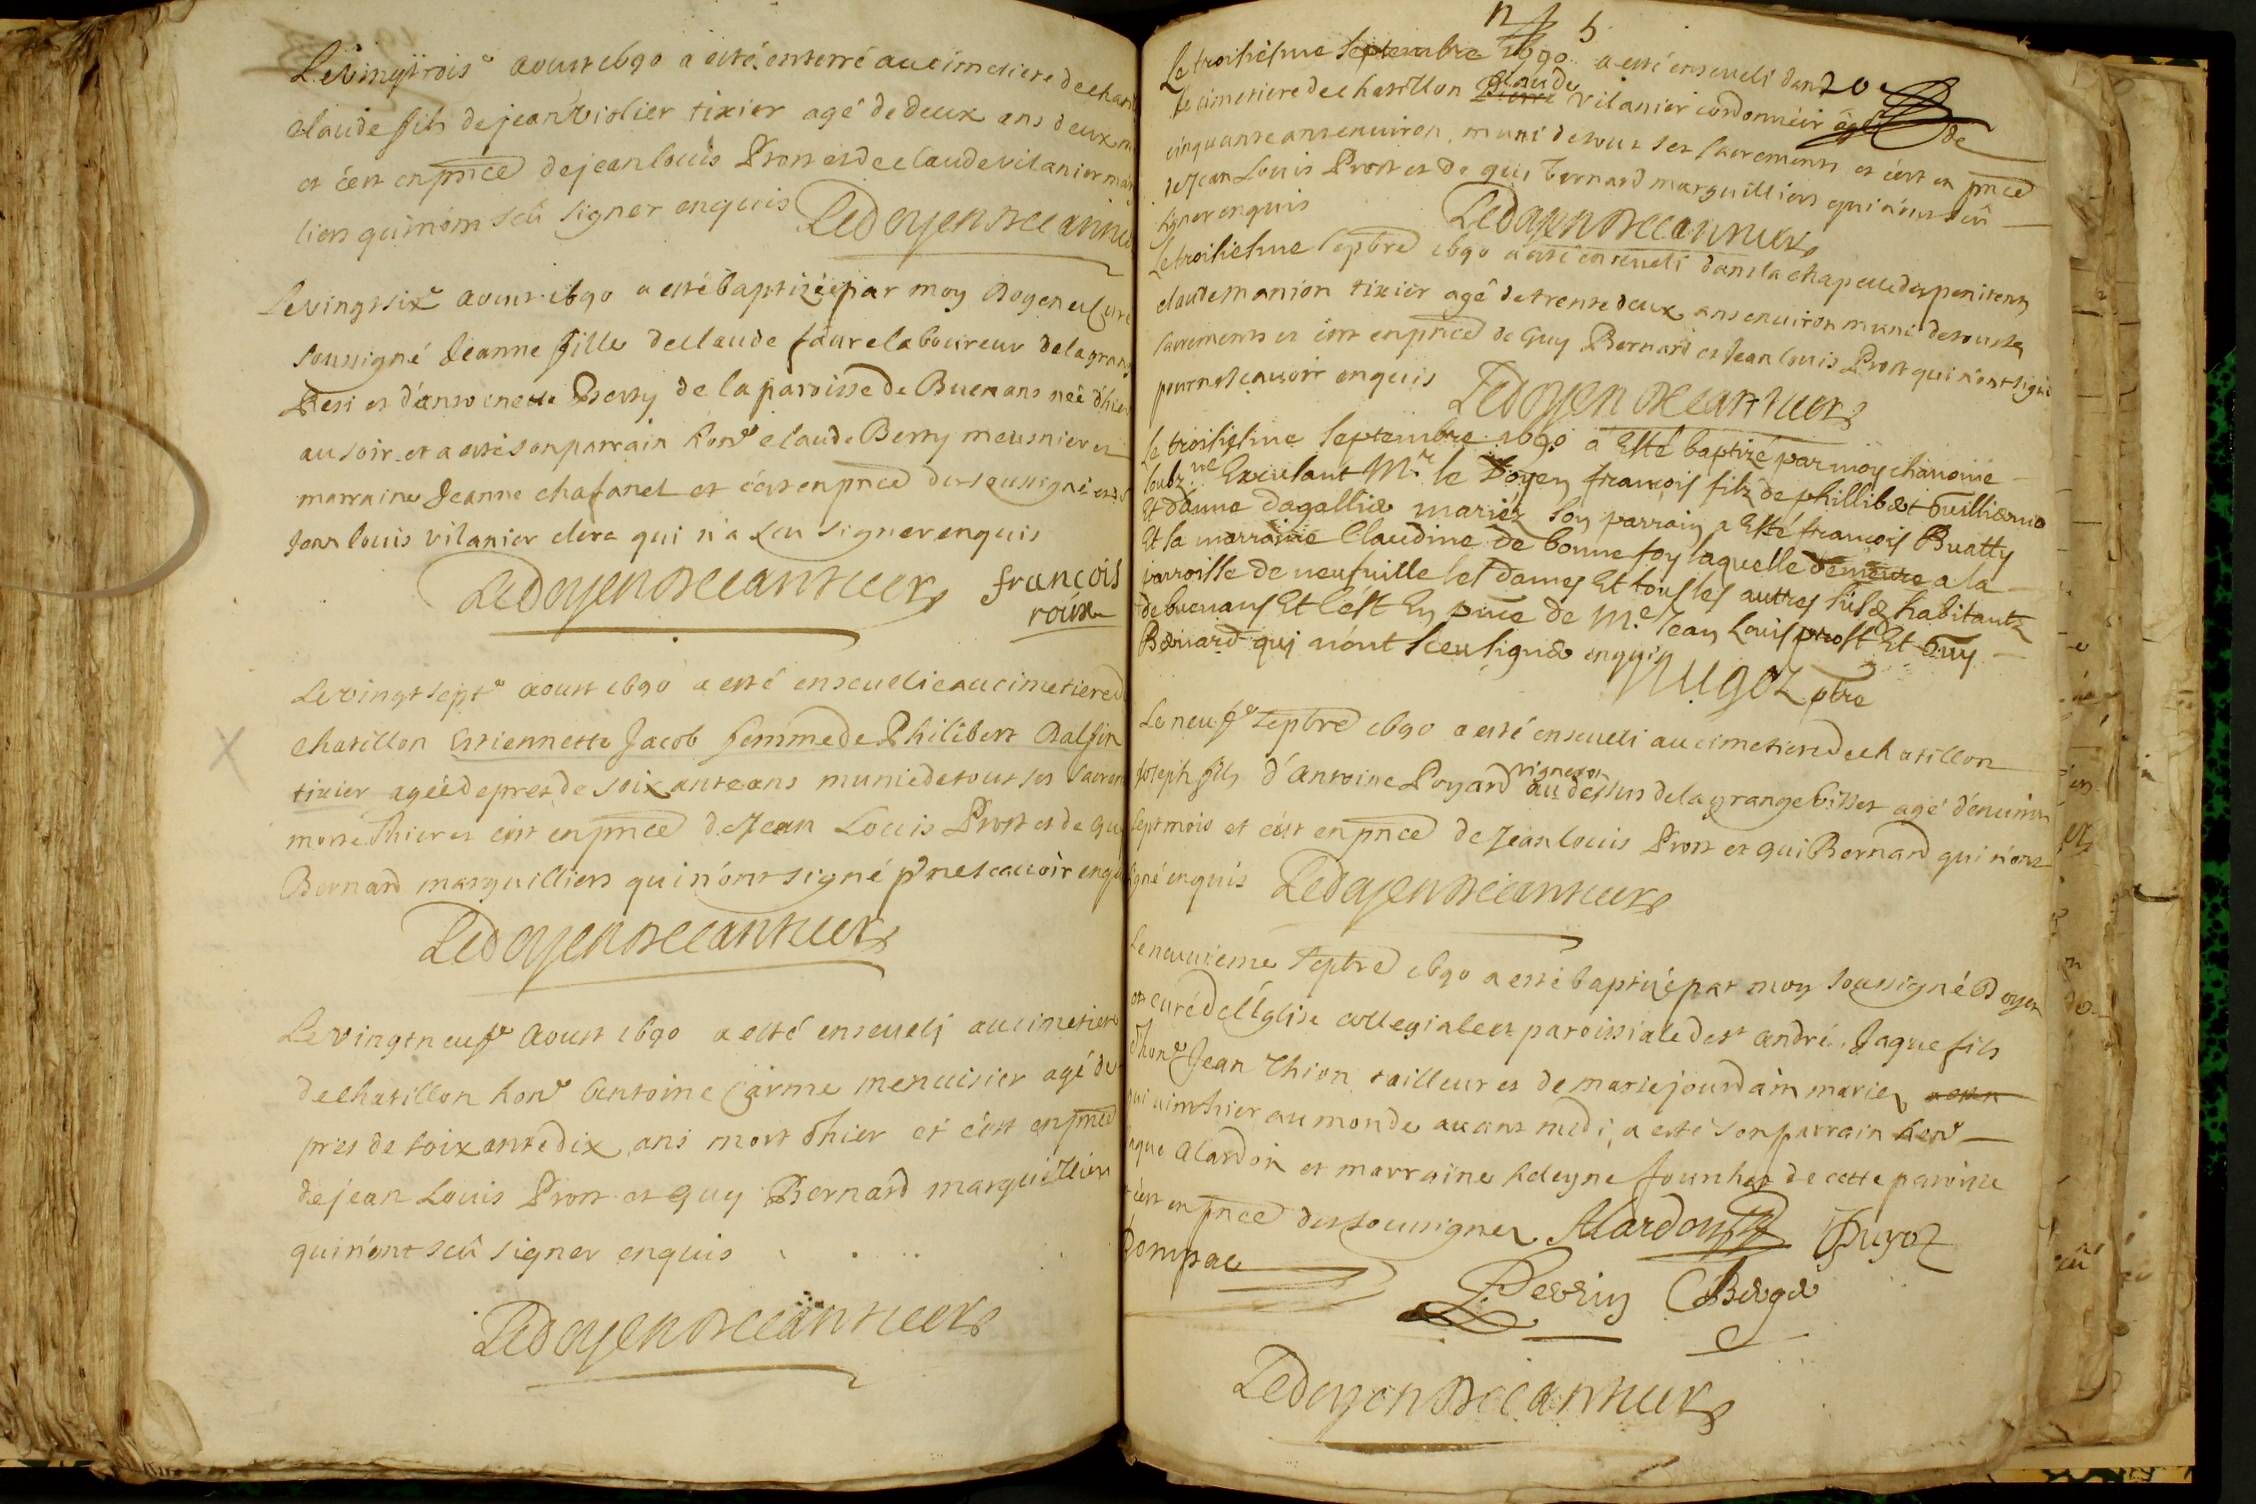 Le vingt trois^e aoust 1690 a esté enterré au cimetiere de chati
claude fils de jean Violier tixier agé de deux ans deux
et cést en p̄nce de jean louis Prost et de claude vilanier mar
liers qui nónt sceu signer enquis Le doyen
Le vingt six^e aoust 1690 a esté baptizée par moy doyen et curé
soussigné Jeanne fille de claude faure laboureur de la grang
et d'antoinette Berry de la paroisse de Buenans née d'hier
au soir et a esté son parrain hon^e claude Berry meusnier et
marraine Jeanne chafanel et cést en p̄nce des soussignés et de
Jean louis vilanier clerc qui n'a sceu signer enquis
Le doyen françois
roux
Le vingt sept^e aoust 1690 a esté ensevelie au cimetiere de
chatillon Estiennette Jacob femme de Philibert Dalfin
tixier agée de pres de soixante ans munie de tout ses sacrem
morte d'hier et cést en p̄nce de Jean Louis Prost et de guy
Bernard marguilliers qui nónt signé p^r ne scavoir enquis
Le doyen
Le vingt neuf^e Aoust 1690 a esté enseveli au cimetiere
de chatillon hon^e Antoine Carme menuisier agé de
pres de soixante dix ans mort d'hier et cést en p̄nce
de jean Louis Prost et guy Bernard marguilliers
qui n'ont sceû signer enquis
Le doyen
n 5
Le troisiesme septembre 1690 a esté enseveli dans 20
le cimetiere de chatillon claude vilanier cordonnier agé de
cinquante ans environ, muni de tout ses sacrements et cést en p̄nce
de Jean Louis Prost et de gui Bernard marguilliers qui nónt sceû
signer enquis Le doyen
Le troisiesme septbre 1690 a esté enseveli dans la chapelle des penitents
claude manion tixier agé de trente deux ans environ muni de tous les
sacrements et cést en p̄nce de Guy Bernard et Jean louis Prost qui n'ont signé
pour ne scavoir enquis Le doyen
Le troisiesme septembre 1690 a Esté baptizé par moy chanoine
soubz^né Exculant M^r le Doyen françois filz de phillibert Guillermo
Et danne dagallier mariéz son parrain a Esté françois Buatty
Et la marraine Claudine de bonne foy laquelle demeure a la
parroisse de neufville les dames Et tous les autres susd habitantz
de buenans Et C'ést En p̄nce de M^e Jean Louis prost Et Guy
Bernard qui n'ónt sceu signer enquis
Nugoz ptre
Le neuf^e septbre 1690 a esté enseveli au cimetiere de chatillon
Joseph fils d'Antoine Poyard vigneron au dessus de la grange bisset agé d'environ
sept mois et cést en p̄nce de Jean louis Prost et gui Bernard qui n'ont
signé enquis Le doyen
Le neuvieme septbre 1690 a esté baptizé par moy soussigné Doyen
et curé de l'Eglise collegiale et paroissiale de s^t andré Jaque fils
d'hon^e Jean Thion tailleur et de marie jourdain mariez
qui vint hier au monde avant midi, a esté son parrain hon^e
Jaque Alardon et marraine heleyne fournher de cette paroisse
et cést en p̄nce des soussignez Alardon Dugoz
Dompae
Perrin Berger
Le doyen